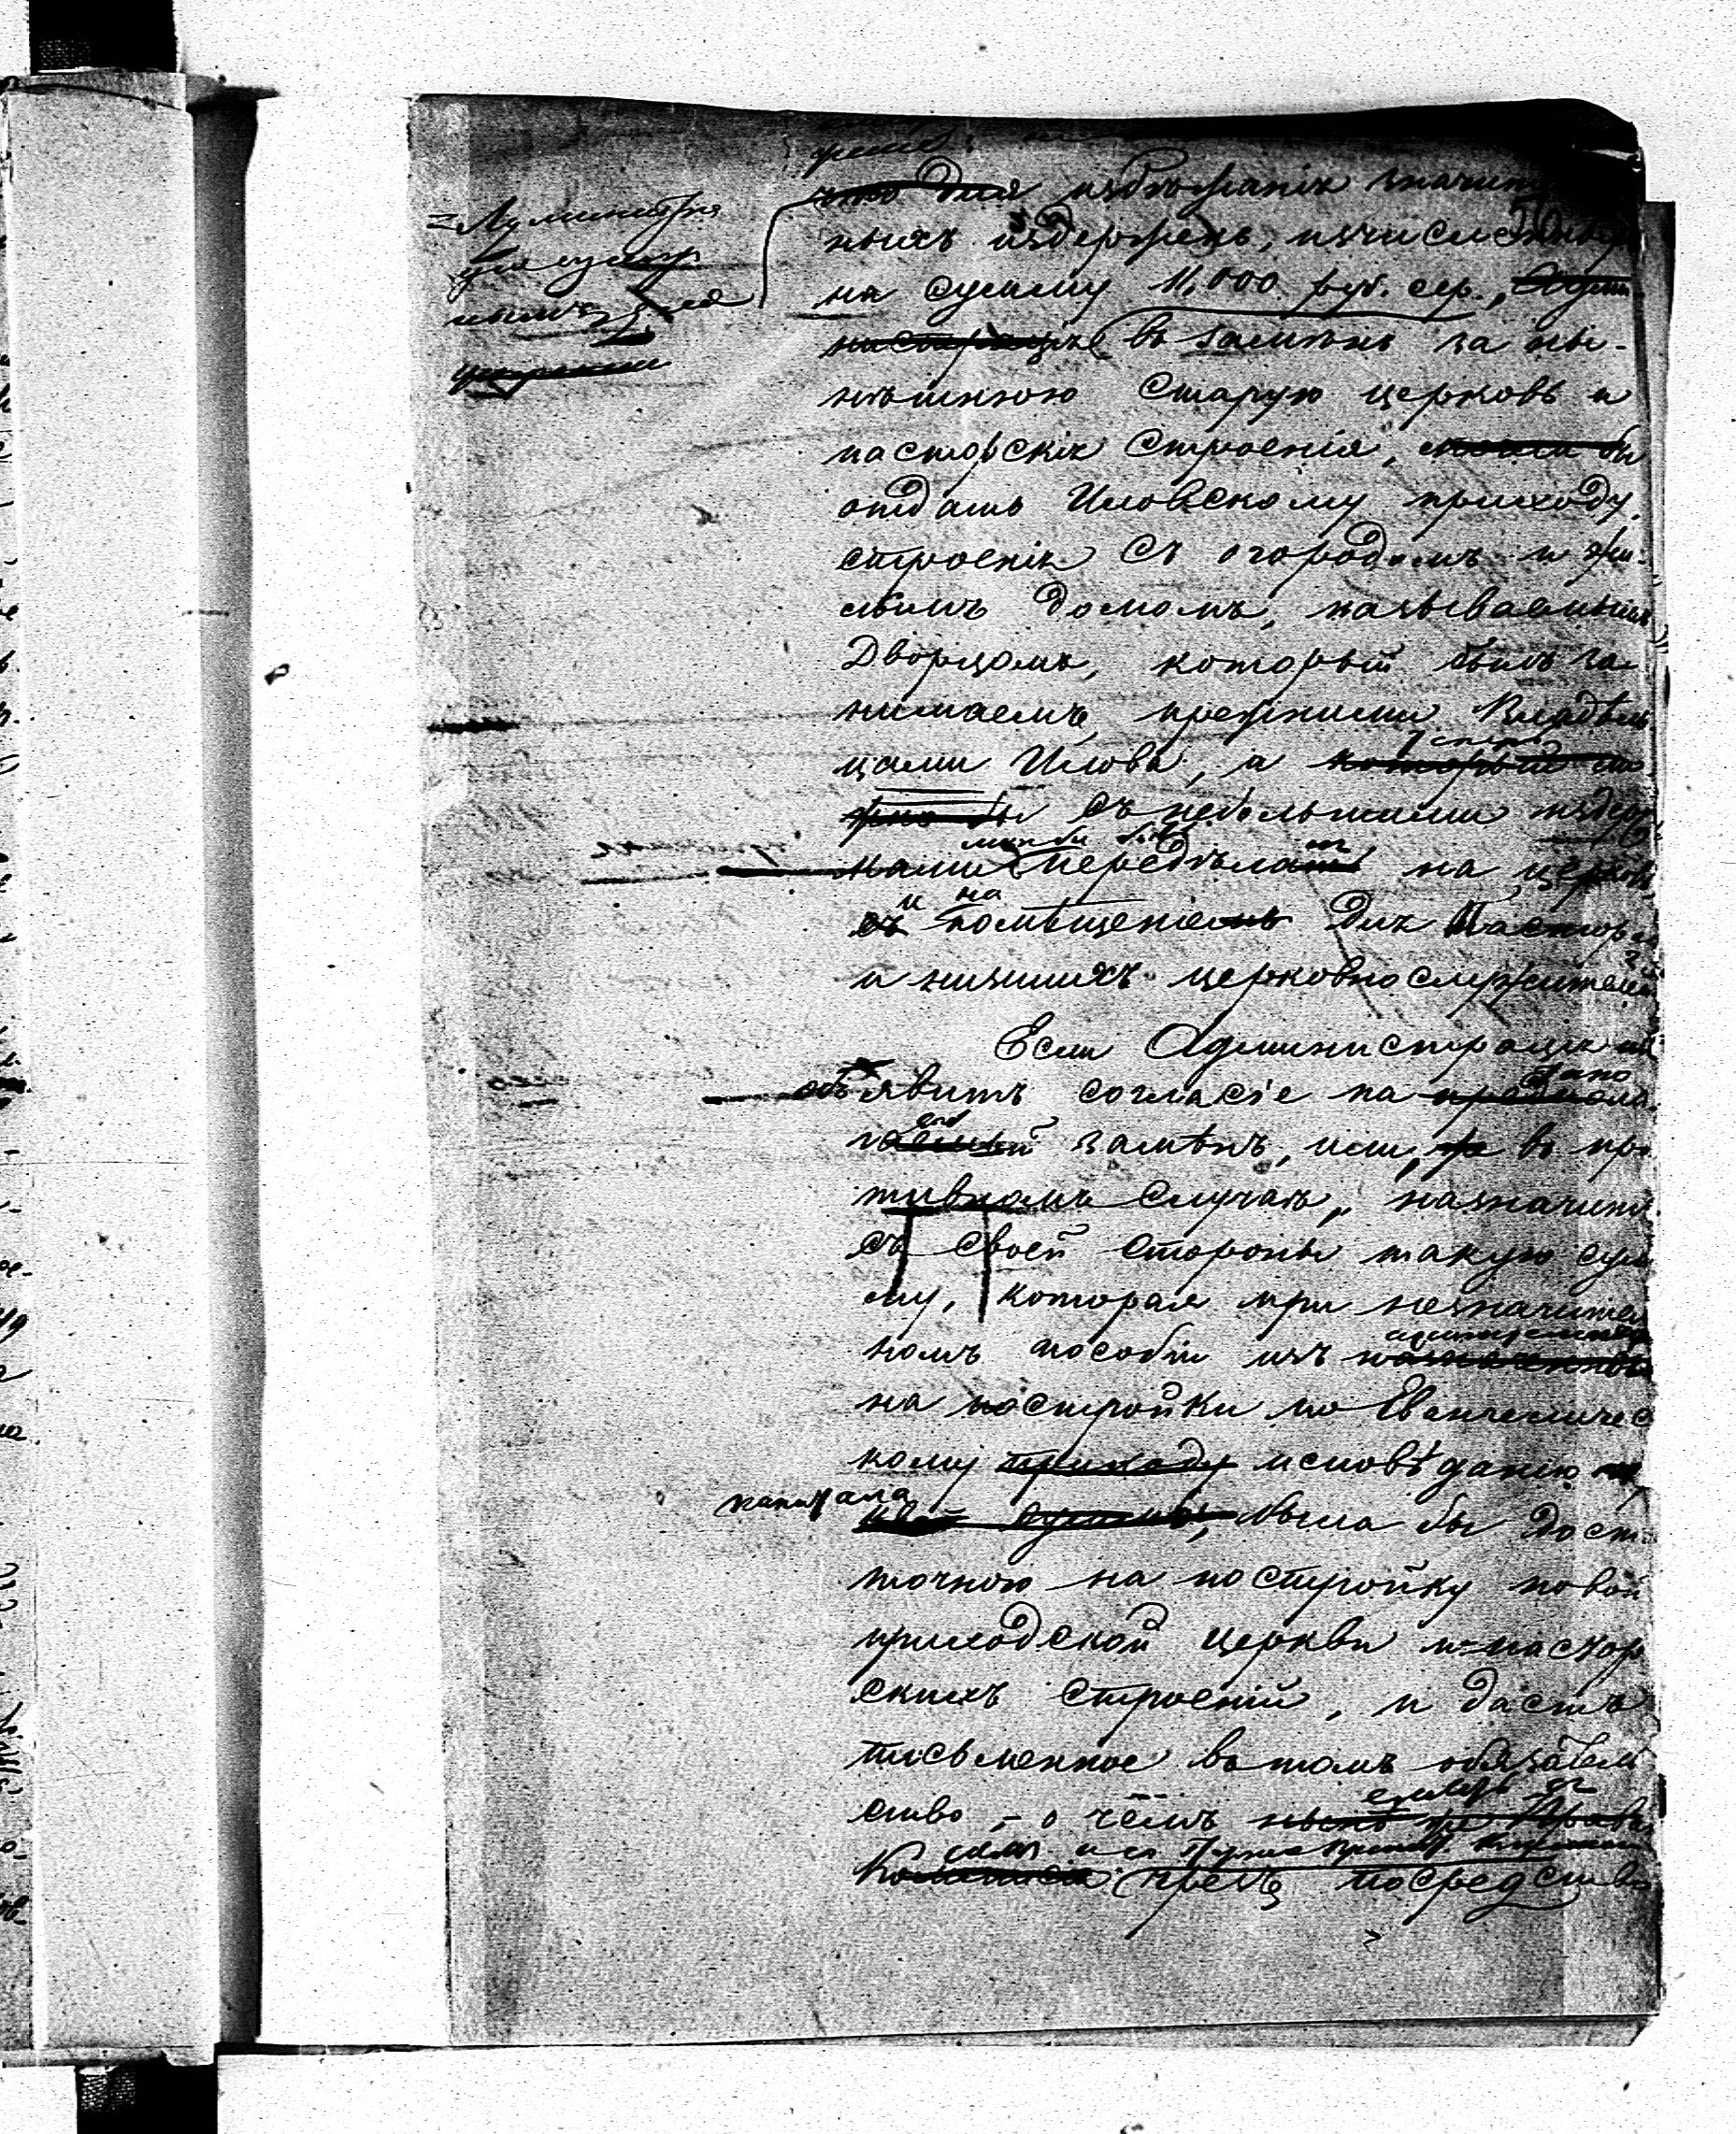 что для избѣжанія значитель
ныхъ издержекъ, исчисленныхъ
на сумму 11,000 руб. сер., Адми
нистрація въ замѣнъ за ны-
нѣшнюю старую церковь и
пасторскія строенія, могла бы
отдать Иловскому приходу,
строенія съ огородомъ и жи-
лымъ домомъ, называемымъ
Дворцомъ, который былъ за
нимаемъ прежними владѣль
цами Илова, а который мо
жно бы съ небольшими издерж
ками передѣлать на церковь,
и на
съ помѣщеніемъ для Пастора
и низшихъ церковнослужителей
Если Администрація
объявитъ согласіе на предпола
гаемый замѣнъ, или же въ про
тивномъ случаѣ, назначитъ
съ своей стороны такую сум
му, которая при незначитель
номъ пособіи изъ назначеннаго
на постройки по Евангеличес
кому приходу исповѣданію
капитала
суммы, была бы доста
точною на постройку новой
приходской церкви и пастор
скихъ строеній, и дастъ
письменное въ томъ обязатель
ство, – о чемъ нынѣ же Права
Коммисія чрезъ посредство